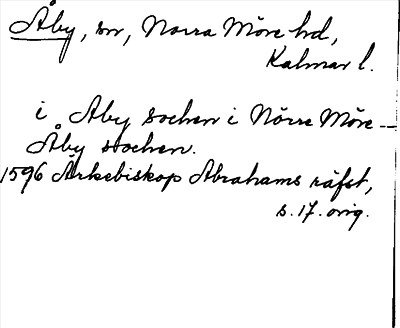 Åby, sn, Norra Möre hd,
Kalmar l.
i Aby Sochen i Nörre Möre —
Åby Sochen.
1596 Ärkebiskop Abrahams räfst,
s. 17. orig.